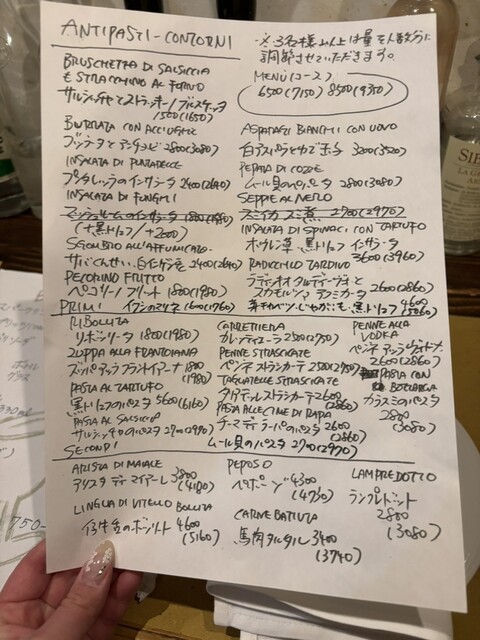 ANTIPASTI - CONTORNI
※3名様以上は量を人数分に
調節させていただきます。
MENÙ(コース)
6500(7150) 8500(9350)
BRUSCHETTA DI SALSICCIA
E STRACCHINO AL FORNO
サルシッチャとストラッキーノ ブルスケッタ
1500(1650)
BURRATA CON ACCIUGHE
ブッラータとアンチョビ 2800(3080)
INSALATA DI PUNTARELLE
プンタレッラのインサラータ 2400(2640)
INSALATA DI FUNGHI
マッシュルームのインサラータ 1800(1980)
(+黒トリュフ/+2000)
SGOMBRO ALL'AFFUMICATO
サバくんせい、白インゲン豆 2400(2640)
PECORINO FRITTO
ペコリーノ フリット 1800(1980)
イワシのマリネ 1600(1760)
ASPARAGI BIANCHI CON UOVO
白アスパラとゆで玉子 3200(3520)
PEPATA DI COZZE
ムール貝のペパータ 2800(3080)
SEPPIE AL NERO
スミイカ スミ煮 2700(2970)
INSALATA DI SPINACI CON TARTUFO
ホウレン草、黒トリュフ インサラータ
3600(3960)
RADICCHIO TARDIVO
ラディッキオ タルディーヴォと
スカモルツァ アフミカータ 2600(2860)
黒トリュフ 4600
(5060)
PRIMI
RIBOLLITA
リボッリータ 1800(1980)
ZUPPA ALLA FRANTOIANA
ズッパ アッラ フラントイアーナ 1800
(1980)
PASTA AL TARTUFO
黒トリュフのパスタ 5600(6160)
PASTA AL SALSICCIA
サルシッチャのパスタ 2700(2970)
CARRETTIERA
カレッティエーラ 2500(2750)
PENNE STRASCICATE
ペンネ ストラシカーテ 2500(2750)
TAGLIATELLE STRASCICATE
タリアテッレ ストラシカーテ 2600
(2860)
PASTA ALLE CIME DI RAPA
チーマ ディ ラーパのパスタ 2600
(2860)
ムール貝のパスタ 2700(2970)
PENNE ALLA
VODKA
ペンネ アッラ ヴォドカ
2600(2860)
PASTA CON
BOTTARGA
カラスミのパスタ
2800
(3080)
SECONDI
ARISTA DI MAIALE
アリスタ ディ マイアーレ 3800
(4180)
LINGUA DI VITELLO BOLLITA
仔牛舌のボッリート 4600
(5160)
PEPOSO
ペポーゾ 4300
(4730)
CARNE BATTUTA
馬肉タルタル 3400
(3740)
LAMPREDOTTO
ランプレドット
2800
(3080)
750-